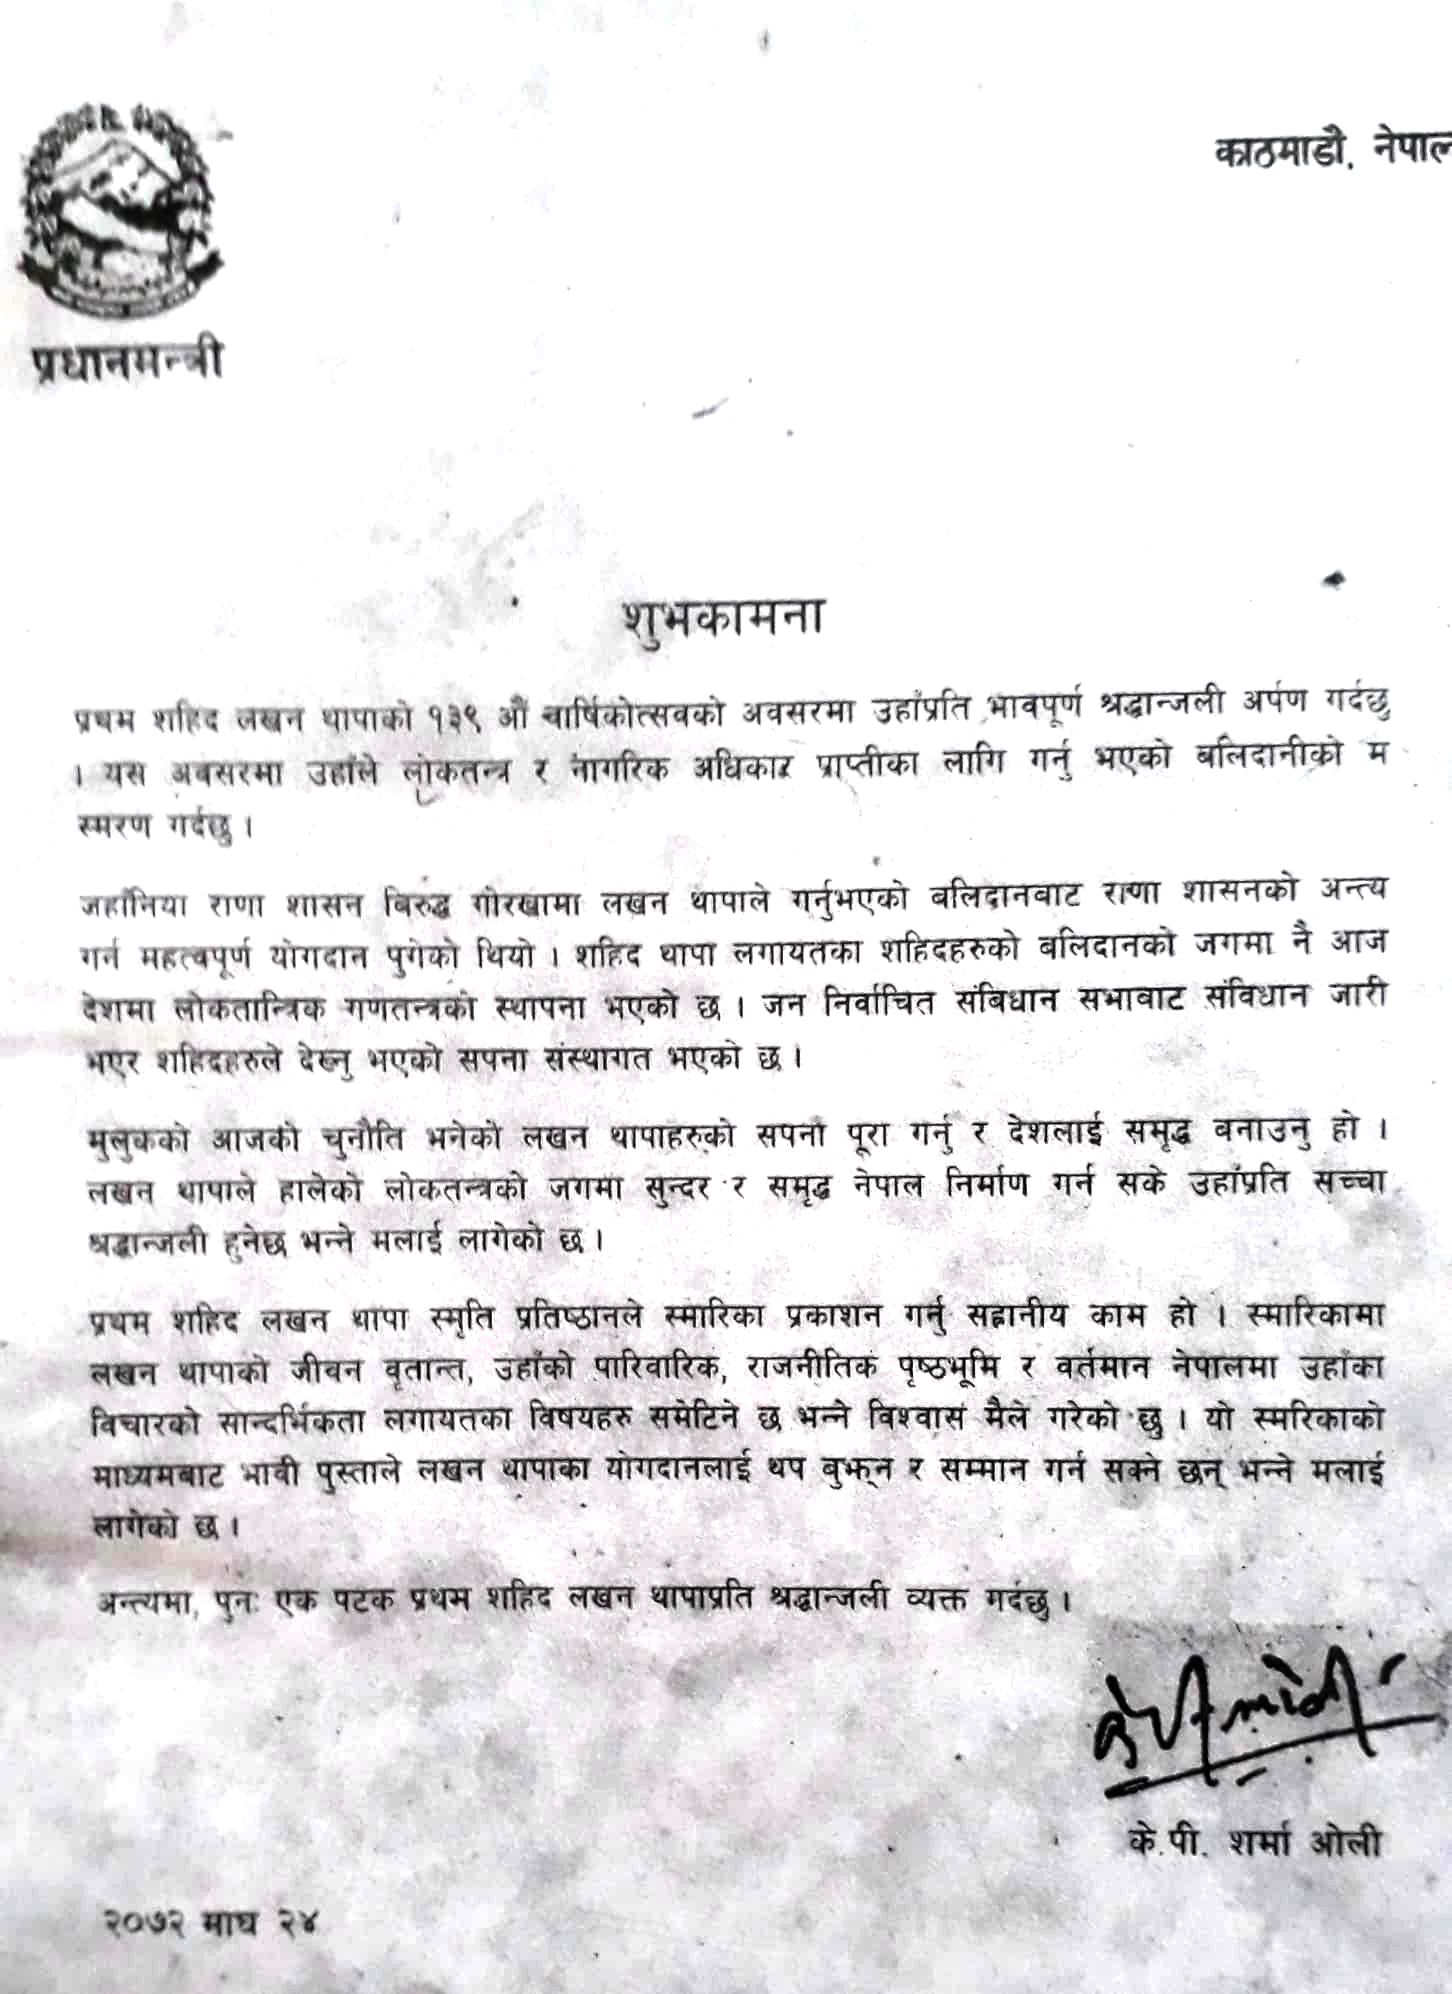 काठमाडौं, नेपाल
प्रधानमन्त्री
शुभकामना
प्रथम शहिद लखन थापाको १३९ औं वार्षिकोत्सवको अवसरमा उहाँप्रति भावपूर्ण श्रद्धान्जली अर्पण गर्दछु
। यस अवसरमा उहाँले लोकतन्त्र र नागरिक अधिकार प्राप्तीका लागि गर्नु भएको बलिदानीको म
स्मरण गर्दछु ।
जहाँनिया राणा शासन बिरुद्ध गोरखामा लखन थापाले गर्नुभएको बलिदानबाट राणा शासनको अन्त्य
गर्न महत्वपूर्ण योगदान पुगेको थियो । शहिद थापा लगायतका शहिदहरुको बलिदानको जगमा नै आज
देशमा लोकतान्त्रिक गणतन्त्रको स्थापना भएको छ । जन निर्वाचित संबिधान सभाबाट संविधान जारी
भएर शहिदहरुले देख्नु भएको सपना संस्थागत भएको छ ।
मुलुकको आजको चुनौति भनेको लखन थापाहरुको सपना पूरा गर्नु र देशलाई समृद्ध बनाउनु हो ।
लखन थापाले हालेको लोकतन्त्रको जगमा सुन्दर र समृद्ध नेपाल निर्माण गर्न सके उहाँप्रति सच्चा
श्रद्धान्जली हुनेछ भन्ने मलाई लागेको छ ।
प्रथम शहिद लखन थापा स्मृति प्रतिष्ठानले स्मारिका प्रकाशन गर्नु सह्रानीय काम हो । स्मारिकामा
लखन थापाको जीवन वृतान्त, उहाँको पारिवारिक, राजनीतिक पृष्ठभूमि र वर्तमान नेपालमा उहाँका
विचारको सान्दर्भिकता लगायतका विषयहरु समेटिने छ भन्ने विश्वास मैले गरेको छु । यो स्मरिकाको
माध्यमबाट भावी पुस्ताले लखन थापाका योगदानलाई थप बुझ्न र सम्मान गर्न सक्ने छन् भन्ने मलाई
लागेको छ ।
अन्त्यमा, पुनः एक पटक प्रथम शहिद लखन थापाप्रति श्रद्धान्जली व्यक्त गर्दछु ।
के.पी. शर्मा ओली
२०७२ माघ २४